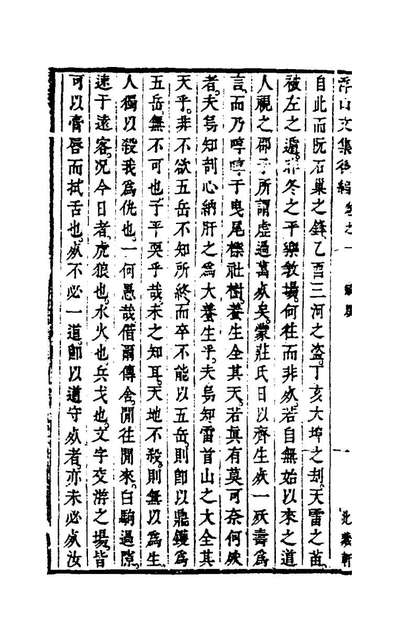 浮山文集後編 卷之一 一 此藏軒
自此而阮石巢之鋒乙酉三河之盜丁亥大埠之刦天雷之苗
被左之遁非冬之平樂敎場何往而非死若自無始以來之道
人視之邵子所謂虛過萬死矣蒙莊氏日以齊生死一殀壽為
言而乃啍啍于曳尾櫟社樹養生全其天若眞有莫可奈何然
者夫焉知刳心納肝之為大養生乎夫焉知雷首山之大全其
天乎非不欲五岳不知所終而卒不能以五岳則卽以鼎鑊為
五岳無不可也子平乎哉未之知耳天地不殺則無以為生
人獨以殺我為仇也一何愚哉借爾傳舍閒往閒來白駒過隙
速于遠客況今日者虎狼也水火也兵戈也文字交游之場皆
可以膏唇而拭舌也死不必一道卽以道守死者亦未必死汝